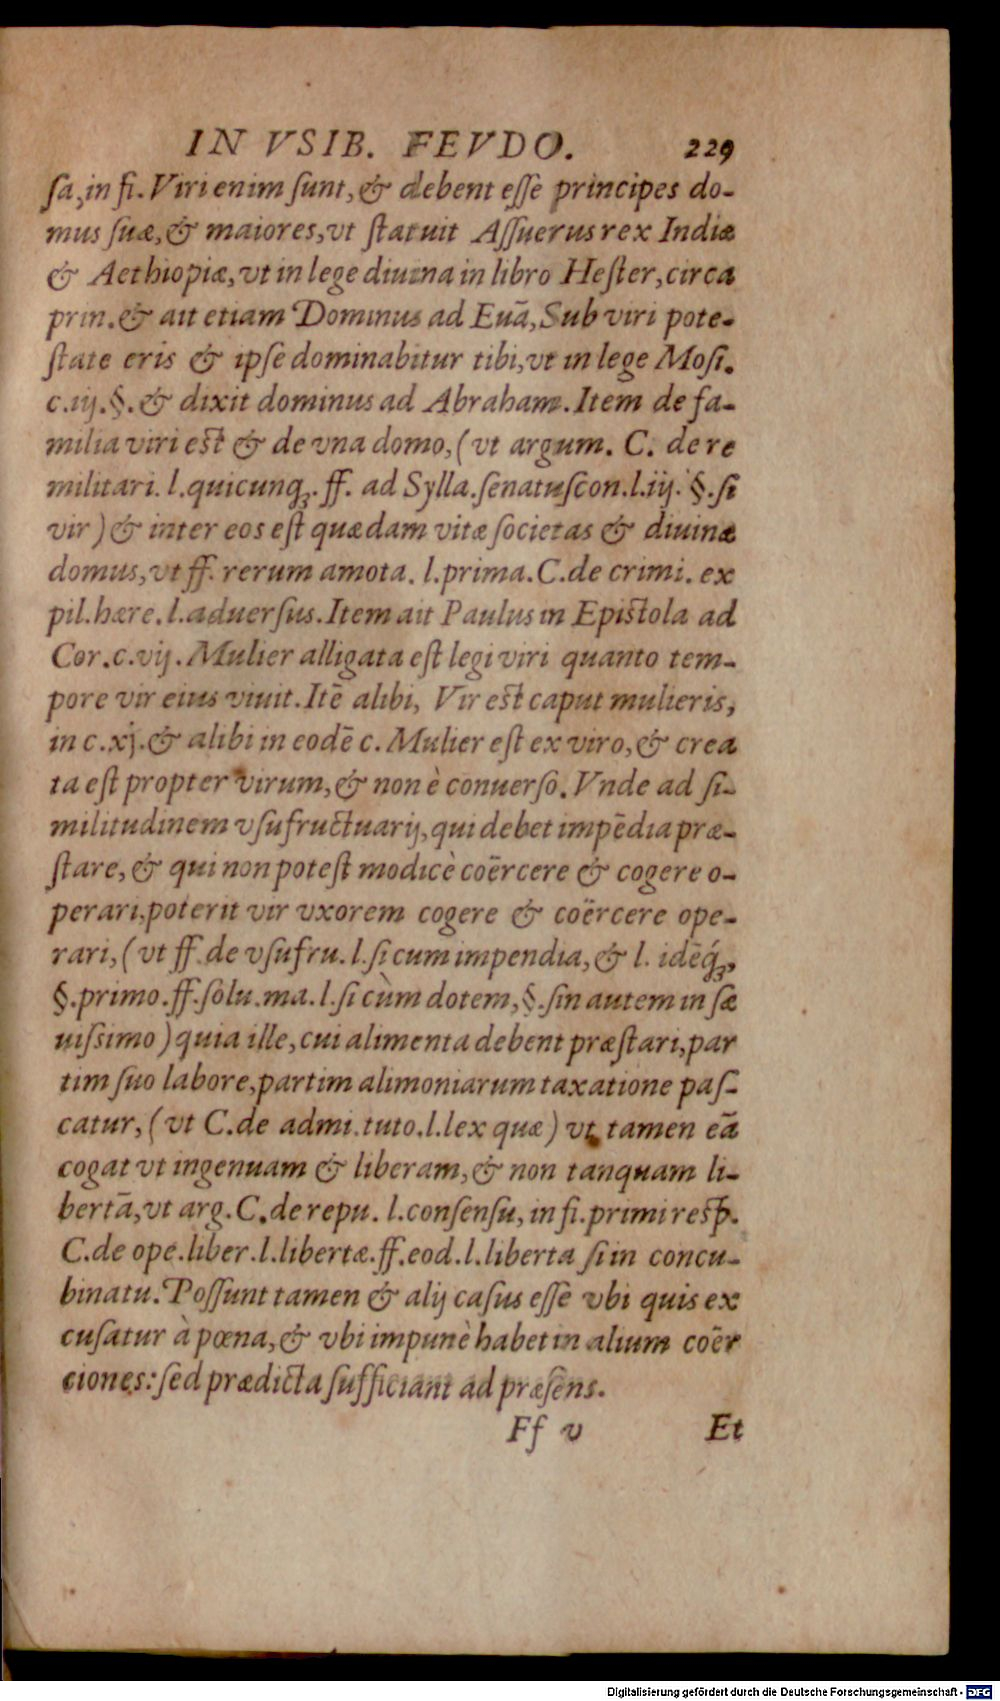 IN VSIB. FEVDO. 229
sa, in fi. Viri enim sunt, & debent esse principes do-
mus suæ, & maiores, vt statuit Assuerus rex Indiæ
& Aethiopiæ, vt in lege diuina in libro Hester, circa
prin. & ait etiam Dominus ad Euã, Sub viri pote-
state eris & ipse dominabitur tibi, vt in lege Mosi.
c. iij. §. & dixit dominus ad Abraham. Item de fa-
milia viri est & de vna domo, (vt argum. C. de re
militari. l. quicunqꝫ. ff. ad Sylla. senatuscon. l. iij. §. si
vir) & inter eos est quædam vitæ societas & diuinæ
domus, vt ff. rerum amota. l. prima. C. de crimi. ex
pil. hære. l. aduersus. Item ait Paulus in Epistola ad
Cor. c. vij. Mulier alligata est legi viri quanto tem-
pore vir eius viuit. Itẽ alibi, Vir est caput mulieris,
in c. xj. & alibi in eodẽ c. Mulier est ex viro, & crea
ta est propter virum, & non è conuerso. Vnde ad si-
militudinem vsufructuarij, qui debet impẽdia præ-
stare, & qui non potest modicè coërcere & cogere o-
perari, poterit vir vxorem cogere & coërcere ope-
rari, (vt ff. de vsufru. l. si cum impendia, & l. idẽqꝫ,
§. primo. ff. solu. ma. l. si cùm dotem, §. sin autem in sæ
uissimo) quia ille, cui alimenta debent præstari, par
tim suo labore, partim alimoniarum taxatione pas-
catur, (vt C. de admi. tuto. l. lex quæ) vt tamen eã
cogat vt ingenuam & liberam, & non tanquam li-
bertã, vt arg. C. de repu. l. consensu, in fi. primi resp.
C. de ope. liber. l. libertæ. ff. eod. l. liberta si in concu-
binatu. Possunt tamen & alij casus esse vbi quis ex
cusatur à pœna, & vbi impunè habet in alium coër
ciones: sed prædicta sufficiant ad præsens.
Ff v Et
Digitalisierung gefördert durch die Deutsche Forschungsgemeinschaft - DFG